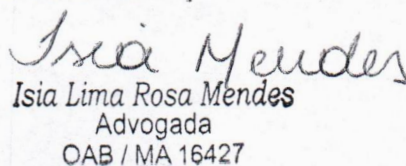 Isia Mendes
Isia Lima Rosa Mendes
Advogada
OAB / MA 16427